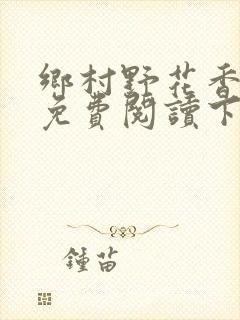 鄉村野花香
免費閱讀下
鍾苗